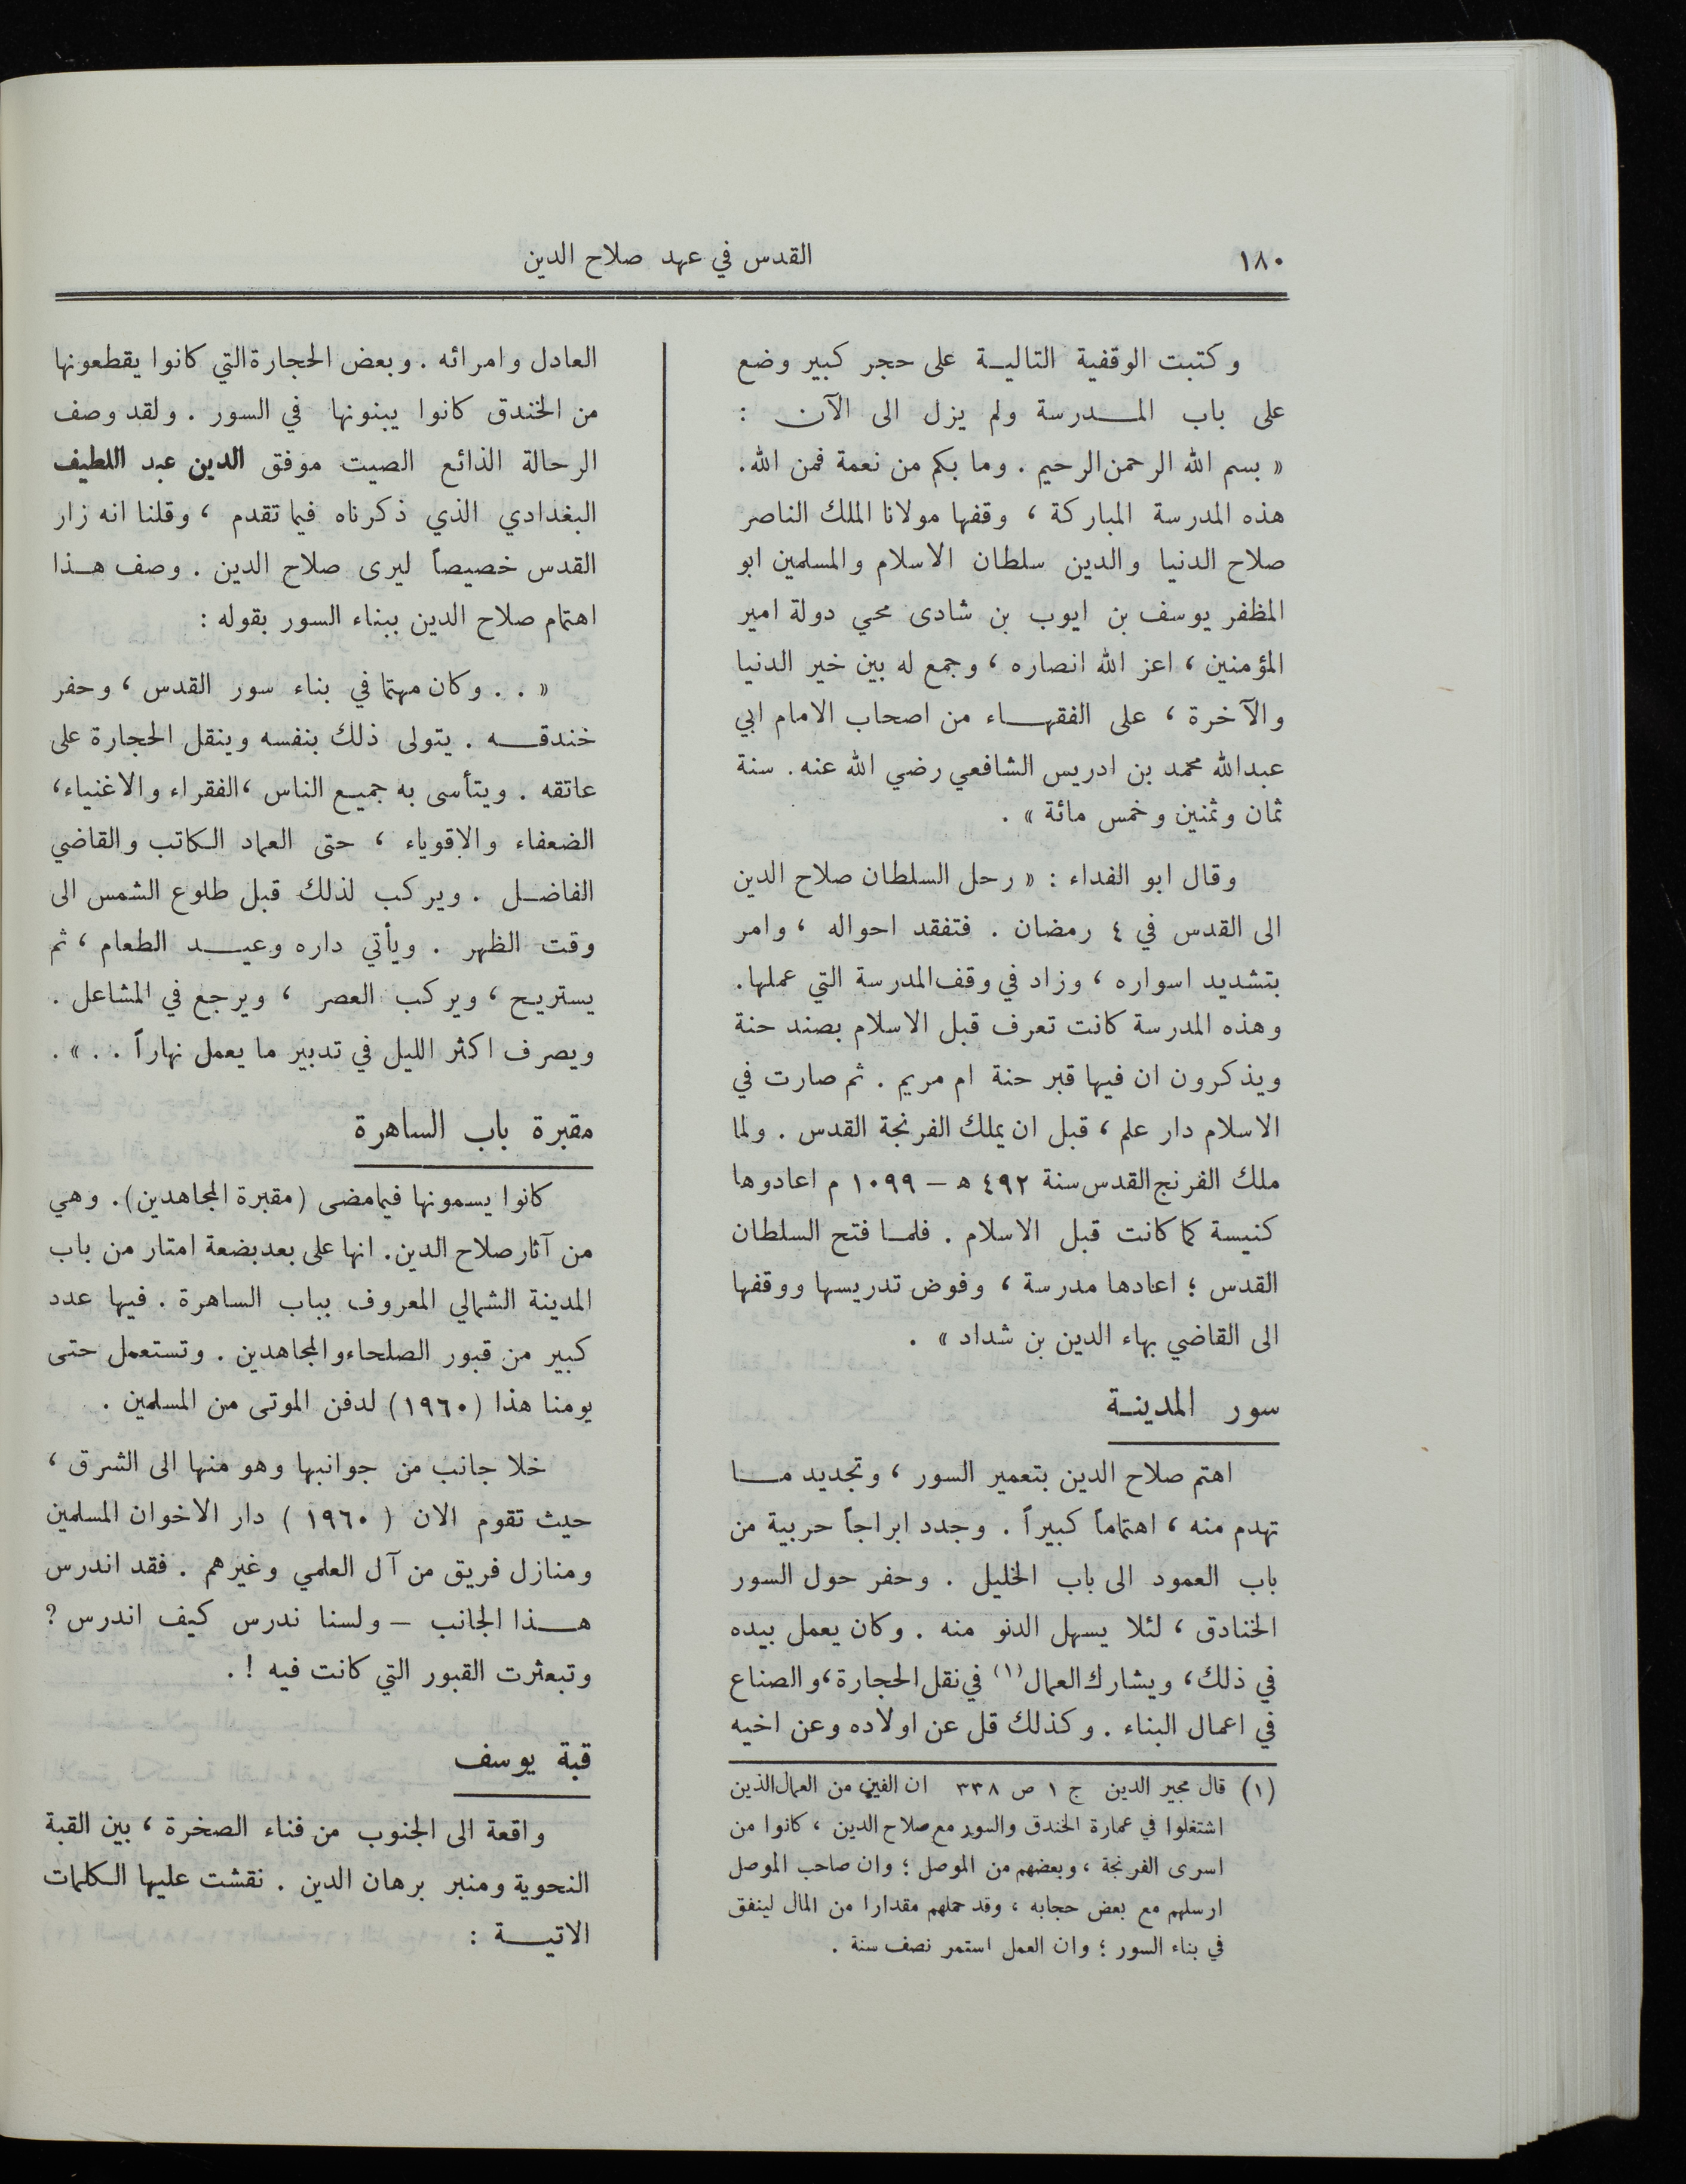 ١٨٠
القدس في عهد صلاح الدين
وكتبت الوقفية التاليـة على حجر كبير وضع
على باب المـدرسة ولم يزل الى الآن :
« بسم الله الرحمن الرحيم . وما بكم من نعمة فمن الله.
هذه المدرسة المباركة ، وقفها مولانا الملك الناصر
صلاح الدنيا والدين سلطان الاسلام والمسلمين ابو
المظفر يوسف بن ايوب بن شادى محي دولة امير
المؤمنين ، اعز الله انصاره ، وجمع له بين خير الدنيا
والآخرة ، على الفقهـاء من اصحاب الامام ابي
عبدالله محمد بن ادريس الشافعي رضي الله عنه. سنة
ثمان وثمنين وخمس مائة » .
وقال ابو الفداء : « رحل السلطان صلاح الدين
الى القدس في ٤ رمضان . فتفقد احواله ، وامر
بتشديد اسواره ، وزاد في وقف المدرسة التي عملها.
وهذه المدرسة كانت تعرف قبل الاسلام بصند حنة
ويذكرون ان فيها قبر حنة ام مريم . ثم صارت في
الاسلام دار علم ، قبل ان يملك الفرنجة القدس . ولما
ملك الفرنج القدس سنة ٤٩٢ هـ – ١٠٩٩ م اعادوها
كنيسة كما كانت قبل الاسلام . فلمـا فتح السلطان
القدس ؛ اعادها مدرسة ، وفوض تدريسها ووقفها
الى القاضي بهاء الدين بن شداد » .
سور المدينـة
اهتم صلاح الدين بتعمير السور ، وتجديد مـا
تهدم منه ، اهتماماً كبيراً . وجدد ابراجاً حربية من
باب العمود الى باب الخليل . وحفر حول السور
الخنادق ، لئلا يسهل الدنو منه . وكان يعمل بيده
في ذلك، ويشارك العمال (١) في نقل الحجارة، والصناع
في اعمال البناء . وكذلك قل عن اولاده وعن اخيه
(١) قال مجير الدين ج ١ ص ٣٣٨ ان الفين من العمال الذين
اشتغلوا في عمارة الخندق والسور مع صلاح الدين ، كانوا من
اسرى الفرنجة ، وبعضهم من الموصل ؛ وان صاحب الموصل
ارسلهم مع بعض حجابه ، وقد حملهم مقدارا من المال لينفق
في بناء السور ؛ وان العمل استمر نصف سنة .
العادل وامرائه . وبعض الحجارة التي كانوا يقطعونها
من الخندق كانوا يبنونها في السور . ولقد وصف
الرحالة الذائع الصيت موفق الدين عبد اللطيف
البغدادي الذي ذكرناه فيما تقدم ، وقلنا انه زار
القدس خصيصاً ليرى صلاح الدين . وصف هـذا
اهتمام صلاح الدين ببناء السور بقوله :
« . . وكان مهتما في بناء سور القدس ، وحفر
خندقـه . يتولى ذلك بنفسه وينقل الحجارة على
عاتقه . ويتأسى به جميع الناس ،الفقراء والاغنياء،
الضعفاء والاقوياء ، حتى العماد الكاتب والقاضي
الفاضـل . ويركب لذلك قبل طلوع الشمس الى
وقت الظهر . ويأتي داره وعيـد الطعام ، ثم
يستريح ، ويركب العصر ، ويرجع في المشاعل .
ويصرف اكثر الليل في تدبير ما يعمل نهاراً . . » .
مقبرة باب الساهرة
كانوا يسمونها فيما مضى (مقبرة المجاهدين). وهي
من آثار صلاح الدين. انها على بعد بضعة امتار من باب
المدينة الشمالي المعروف بباب الساهرة . فيها عدد
كبير من قبور الصلحاء والمجاهدين . وتستعمل حتى
يومنا هذا (١٩٦٠) لدفن الموتى من المسلمين .
خلا جانب من جوانبها وهو منها الى الشرق ،
حيث تقوم الان ( ١٩٦٠ ) دار الاخوان المسلمين
ومنازل فريق من آل العلمي وغيرهم . فقد اندرس
هـذا الجانب – ولسنا ندرس كيف اندرس ؟
وتبعثرت القبور التي كانت فيه ! .
قبة يوسف
واقعة الى الجنوب من فناء الصخرة ، بين القبة
النحوية ومنبر برهان الدين . نقشت عليها الكلمات
الاتيـة :